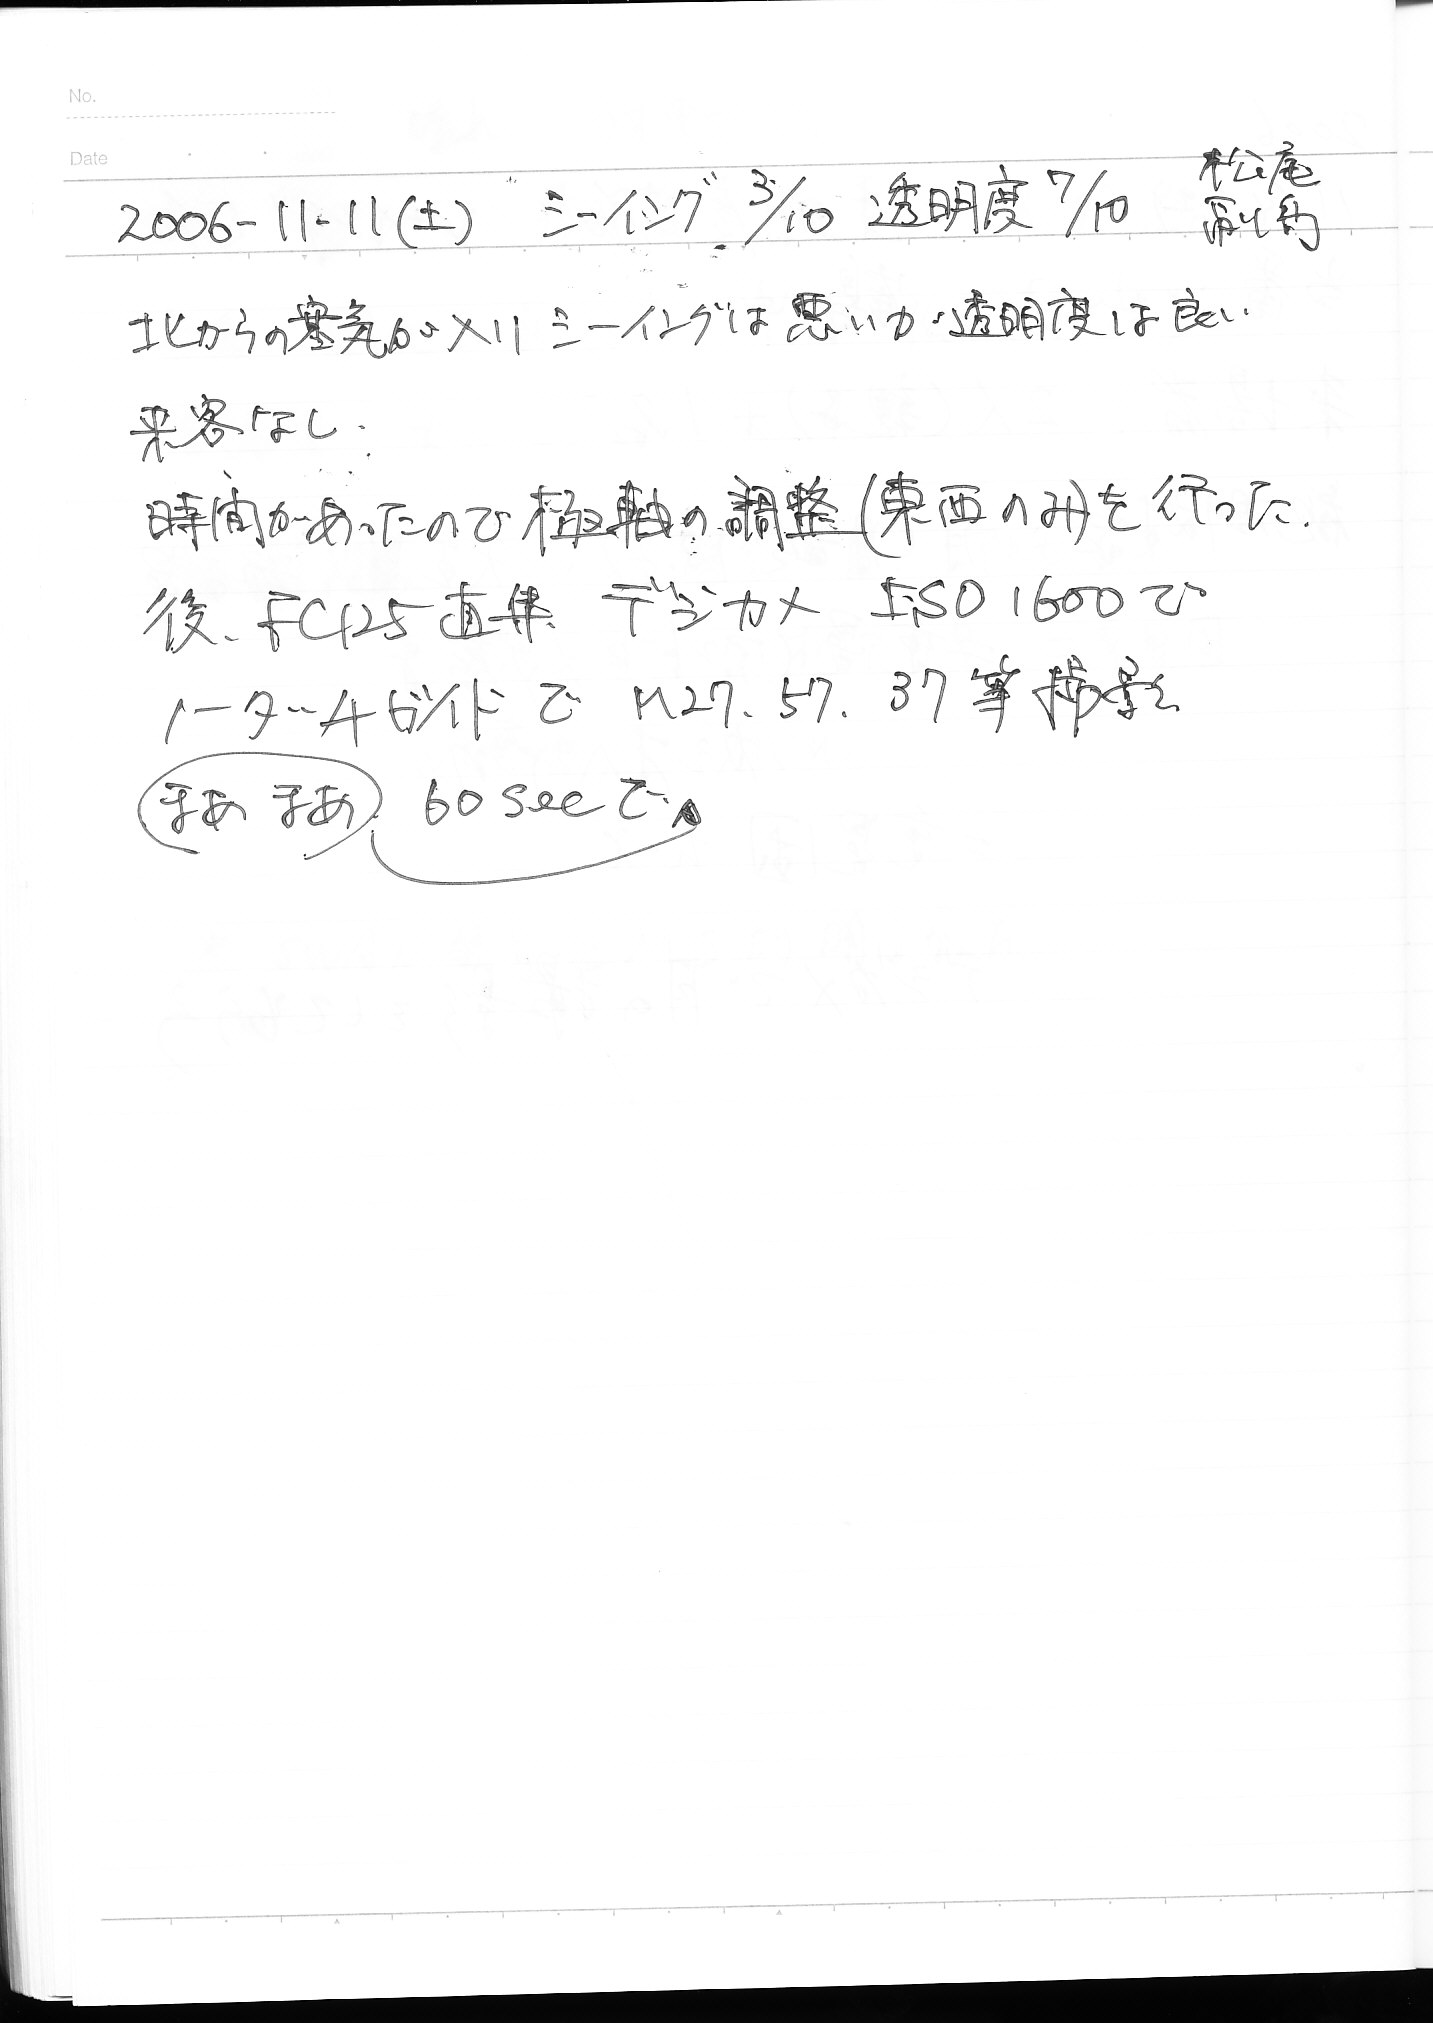 No.
Date
2006-11-11(土) シーイング 3/10 透明度 7/10
松尾
北からの寒気が入りシーイングは悪いが透明度は良い
来客なし.
時間があったので極軸の調整(東西のみ)を行った.
後、FC125直焦 デジカメ ISO 1600で
ノータッチガイドで M27. 57. 37 等
まあまあ 60secで、